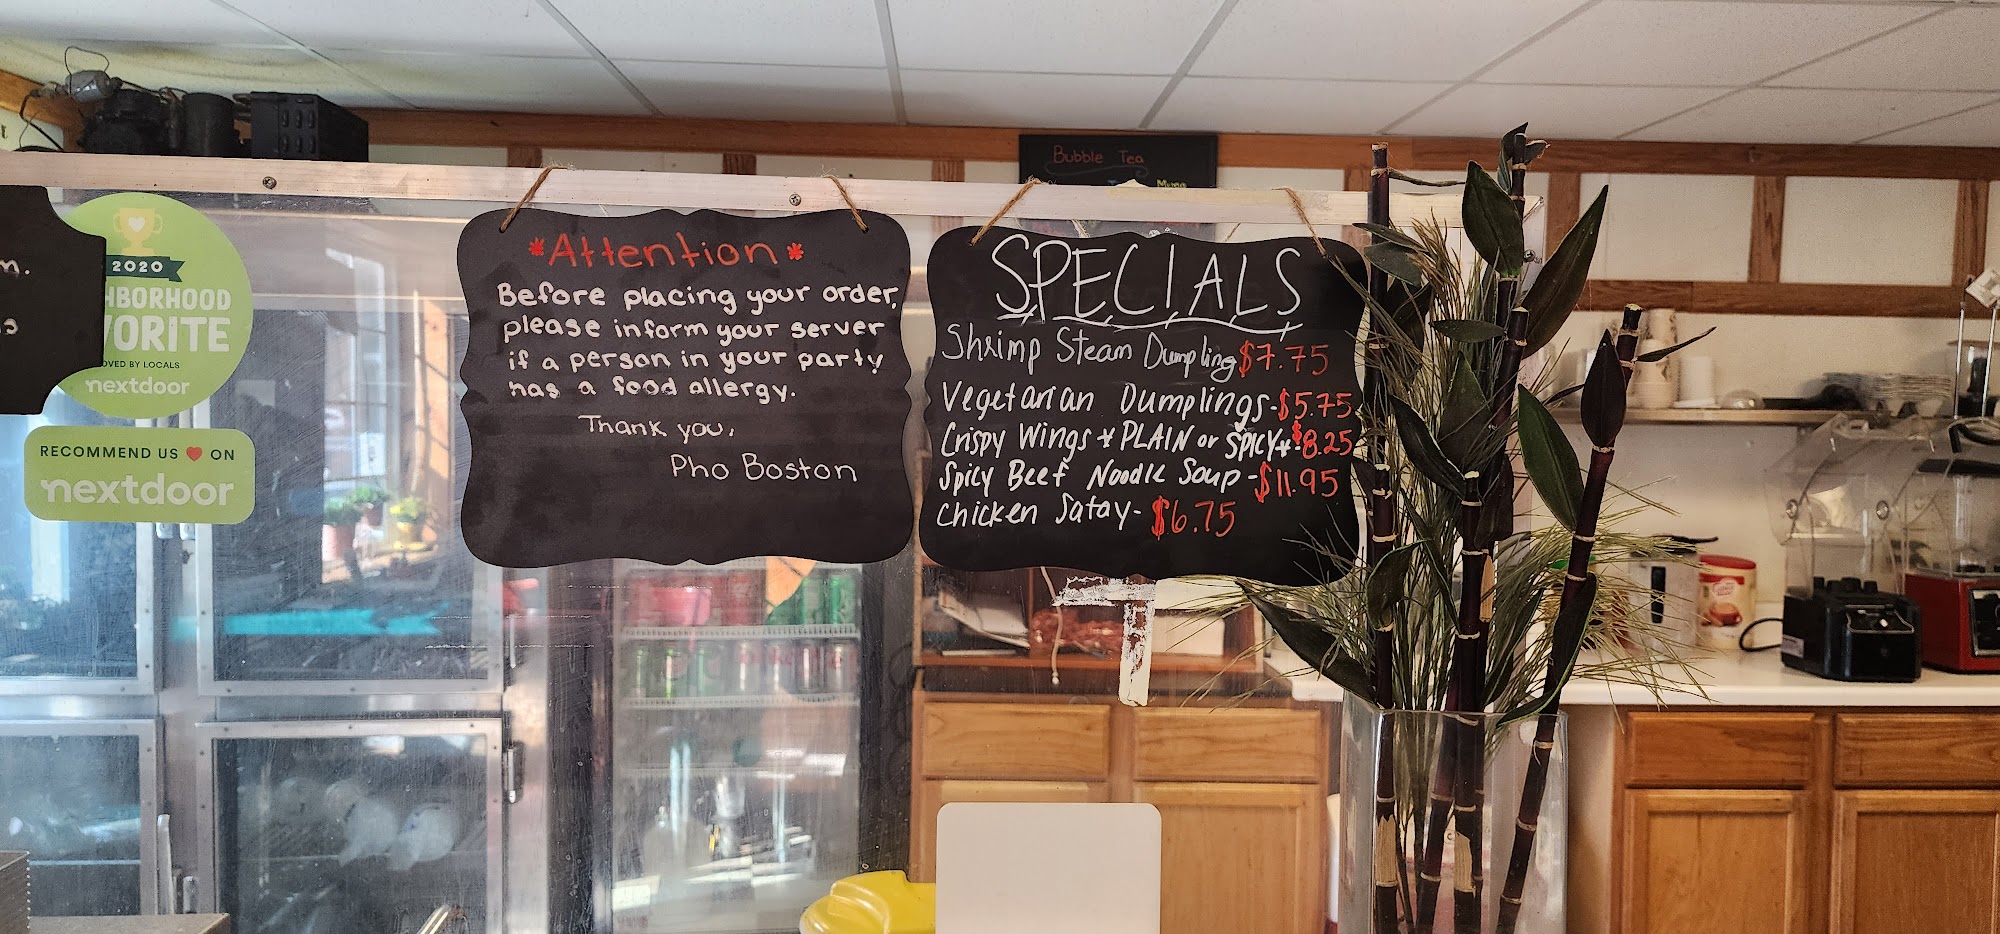 m.
2020
HBORHOOD
VORITE
OVED BY LOCALS
nextdoor
RECOMMEND US ♥ ON
nextdoor
*Attention*
Before placing your order,
please inform your server
if a person in your party
has a food allergy.
Thank you,
Pho Boston
Bubble Tea
SPECIALS
Shrimp Steam Dumpling $7.75
Vegetarian Dumplings-$5.75
Crispy Wings * PLAIN or SPICY*-$8.25
Spicy Beef Noodle Soup-$11.95
Chicken Satay-$6.75